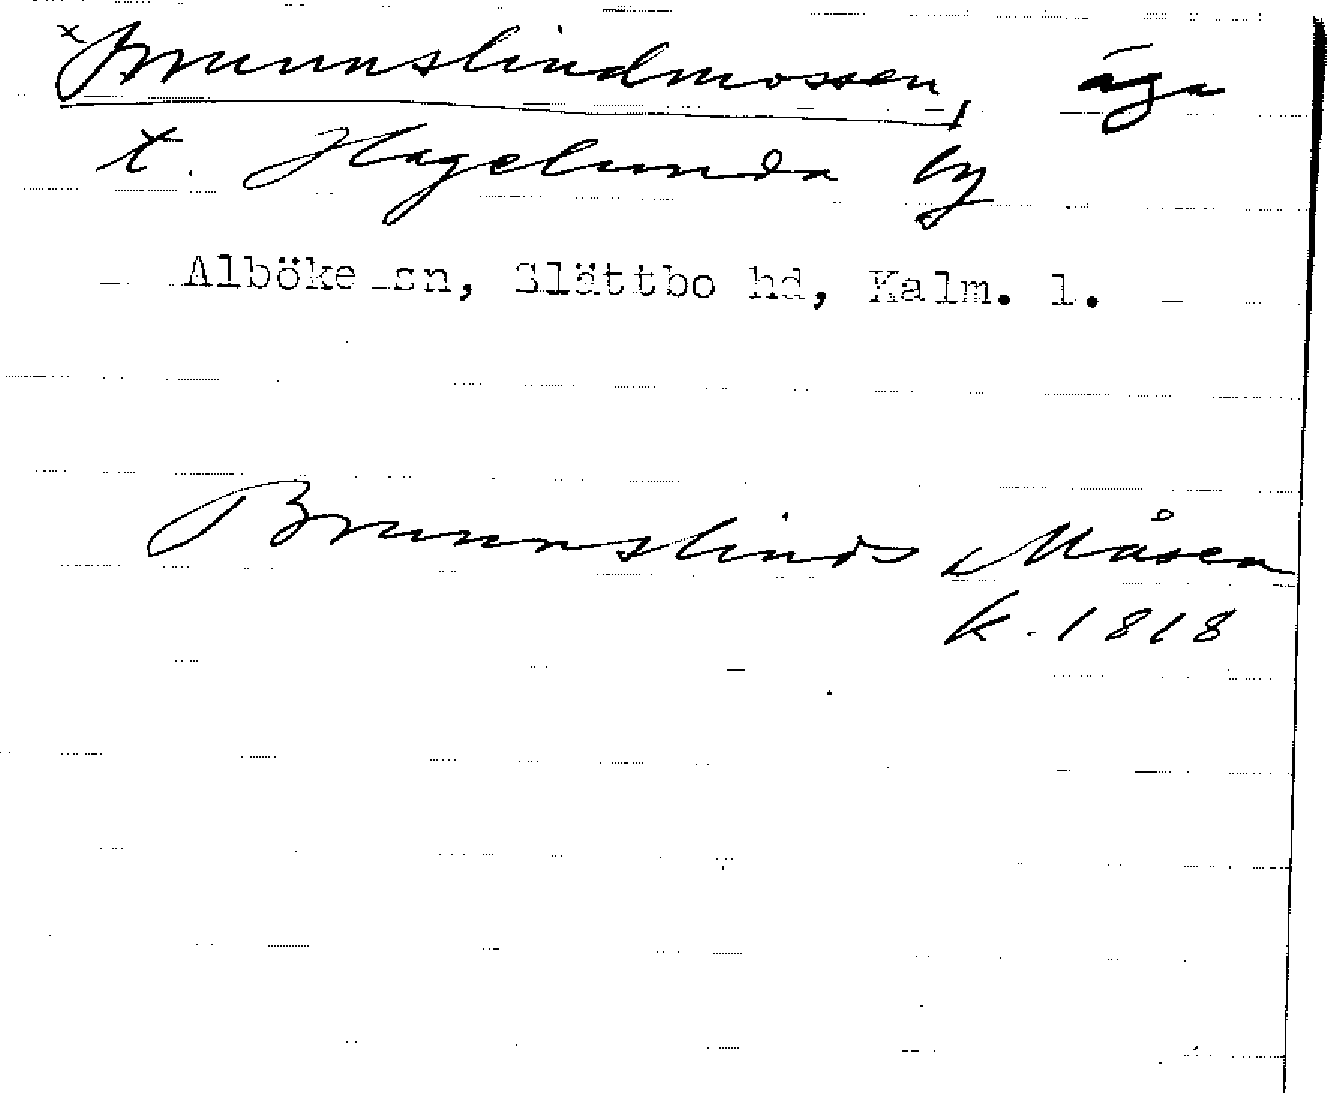 x Brunnslindmossen, äga
t. Hagelunda by
Alböke sn, Slättbo hd, Kalm. l.
Brunnslinds Måsen
k. 1818